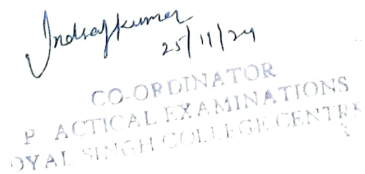 Indrajkumar
25/11/24
CO-ORDINATOR
P ACTICAL EXAMINATIONS
OYAL SINGH COLLEGE CENTRE